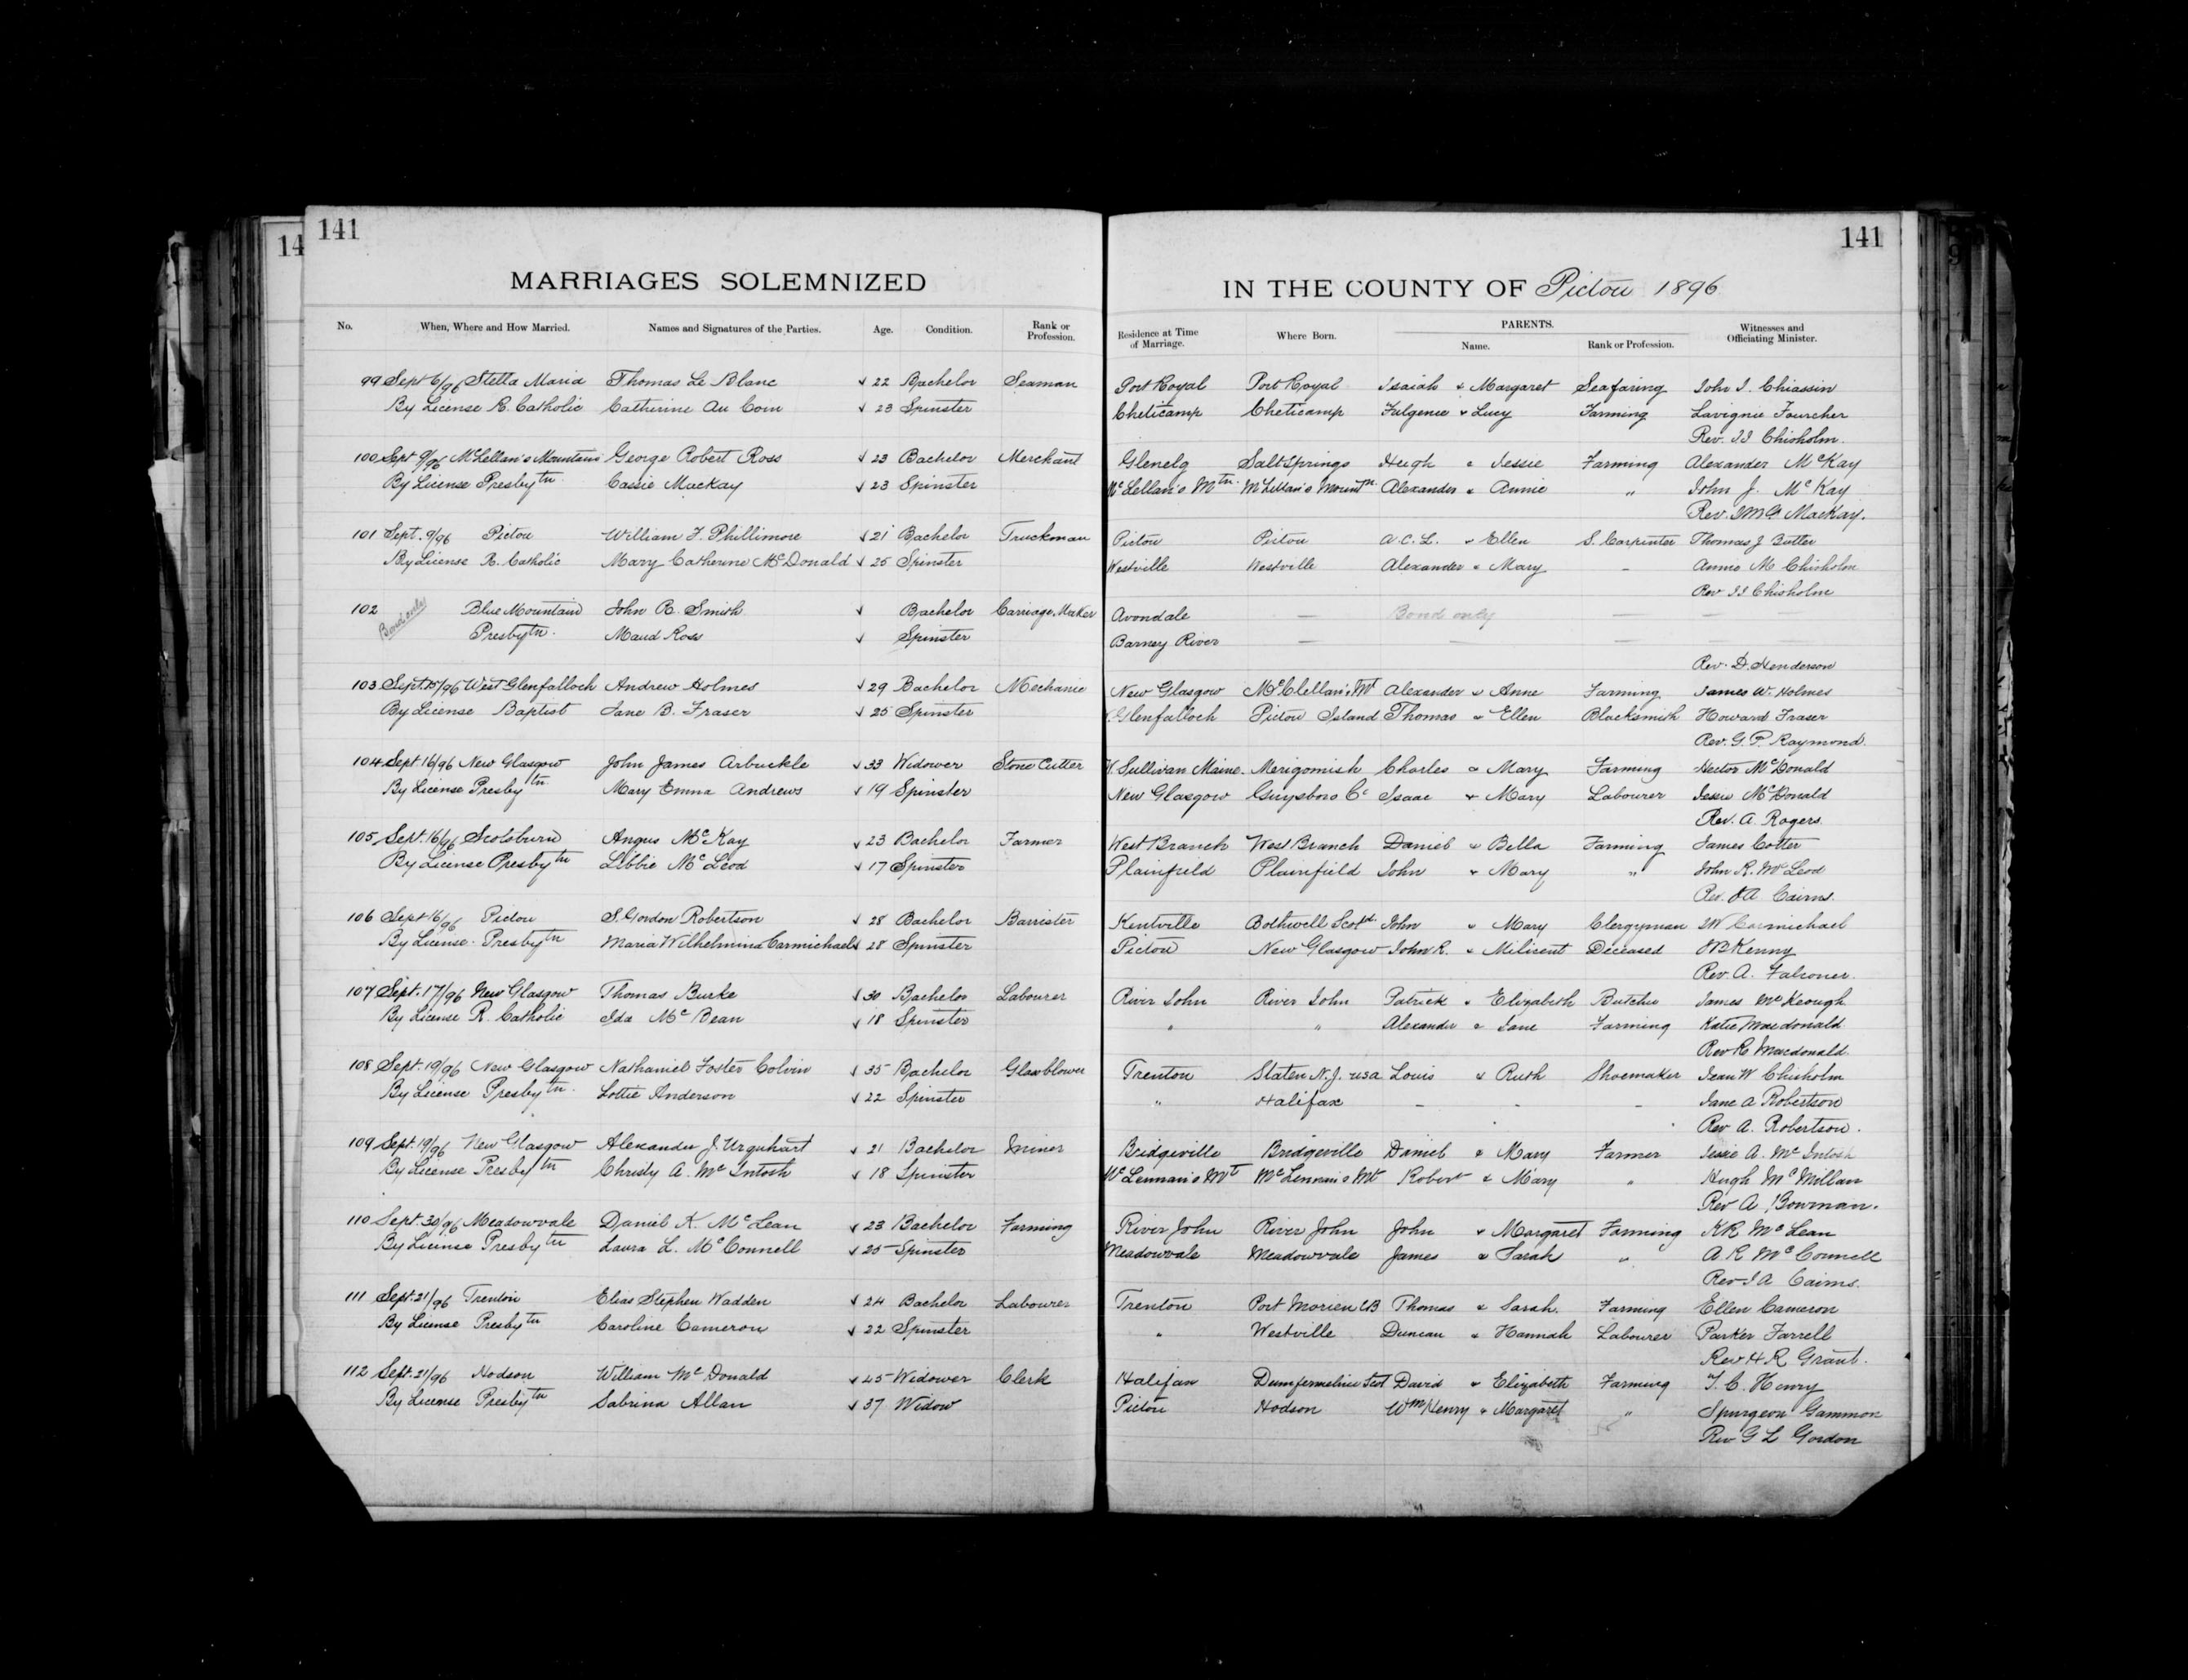 14
141
141
9
MARRIAGES SOLEMNIZED
IN THE COUNTY OF Pictou 1896
No. When, Where and How Married. Names and Signatures of the Parties. Age. Condition. Rank or Profession. Residence at Time of Marriage. Where Born. PARENTS. Name. Rank or Profession. Witnesses and Officiating Minister.
99 Sept 6/96 Stella Maria Thomas Le Blanc √ 22 Bachelor Seaman Port Royal Port Royal Isaiah & Margaret Seafaring John J. Chiassin
By License R. Catholic Catherine Au Coin √ 23 Spinster Cheticamp Cheticamp Fulgence & Lucy Farming Lavignie Fourcher
Rev. JJ Chisholm.
100 Sept 9/96 McLellan's Mountain George Robert Ross √ 23 Bachelor Merchant Glenelg Saltsprings Hugh & Jessie Farming Alexander McKay
By License Presbytn Cassie MacKay √ 23 Spinster McLellan's Mtn. McLellan's Mountn. Alexander & Annie " John J. McKay
Rev. MacKay.
101 Sept. 9/96 Pictou William F. Phillimore √ 21 Bachelor Truckman Pictou Pictou A.C.L. & Ellen S. Carpenter Thomas J Butler
By License R. Catholic Mary Catherine McDonald √ 25 Spinster Westville Westville Alexander & Mary - Annie M Chisholm
Rev JJ Chisholm
102 Bond only Blue Mountain John R. Smith √ Bachelor Carriage Maker Avondale — Bond only — —
Presbytn. Maud Ross √ Spinster Barney River — — — —
Rev. D. Henderson
103 Sept 15/96 West Glenfalloch Andrew Holmes √ 29 Bachelor Mechanic New Glasgow McClellan's Mt Alexander & Anne Farming James W. Holmes
By License Baptist Jane B. Fraser √ 25 Spinster Glenfalloch Pictou Island Thomas & Ellen Blacksmith Howard Fraser
Rev. G. P. Raymond.
104 Sept 16/96 New Glasgow John James Arbuckle √ 33 Widower Stone Cutter Sullivan Maine. Merigomish Charles & Mary Farming Hector McDonald
By License Presbytn Mary Emma Andrews √ 19 Spinster New Glasgow Guysboro Co Isaac & Mary Labourer Jessie McDonald
Rev. A. Rogers.
105 Sept. 16/96 Scotsburn Angus McKay √ 23 Bachelor Farmer West Branch West Branch Daniel & Bella Farming James Cotter
By License Presbytn Libbie McLeod √ 17 Spinster Plainfield Plainfield John & Mary " John R. McLeod
Rev. JA Cairns.
106 Sept 16/96 Pictou S. Gordon Robertson √ 28 Bachelor Barrister Kentville Bothwell Scotd. John & Mary Clergyman JW Carmichael
By License. Presbytn Maria Wilhelmina Carmichael √ 28 Spinster Pictou New Glasgow John R. & Milicent Deceased Kenny
Rev. A. Falconer.
107 Sept. 17/96 New Glasgow Thomas Burke √ 30 Bachelor Labourer River John River John Patrick & Elizabeth Butcher James McKeough
By License R. Catholic Ida McBean √ 18 Spinster " " Alexander & Jane Farming Katie Macdonald
Rev R. Macdonald.
108 Sept. 19/96 New Glasgow Nathaniel Foster Colvin √ 35 Bachelor Glassblower Trenton Staten N.J. USA Louis & Ruth Shoemaker Jean W Chisholm
By License Presbytn. Lottie Anderson √ 22 Spinster " Halifax - - - Jane A Robertson
Rev A. Robertson.
109 Sept. 19/96 New Glasgow Alexander J. Urquhart √ 21 Bachelor Miner Bridgeville Bridgeville Daniel & Mary Farmer Jessie A. McIntosh
By License Presbytn Christy A. McIntosh √ 18 Spinster McLennan's Mt McLennan's Mt Robert & Mary " Hugh McMillan
Rev A Bowman.
110 Sept. 30/96 Meadowvale Daniel K. McLean √ 23 Bachelor Farming River John River John John & Margaret Farming KR McLean
By License Presbytn Laura L. McConnell √ 25 Spinster Meadowvale Meadowvale James & Sarah " A R McConnell
Rev J A Cairns.
111 Sept. 21/96 Trenton Elias Stephen Wadden √ 24 Bachelor Labourer Trenton Port Morien CB Thomas & Sarah. Farming Ellen Cameron
By License Presbytn Caroline Cameron √ 22 Spinster " Westville Duncan & Hannah Labourer Parker Farrell
Rev H R Grant.
112 Sept. 21/96 Hodson William McDonald √ 45 Widower Clerk Halifax Dumfermeline Scot David & Elizabeth Farming T. C. Henry
By License Presbytn Sabrina Allan √ 37 Widow Pictou Hodson Wm Henry & Margaret " Spurgeon Gammon
Rev G L Gordon